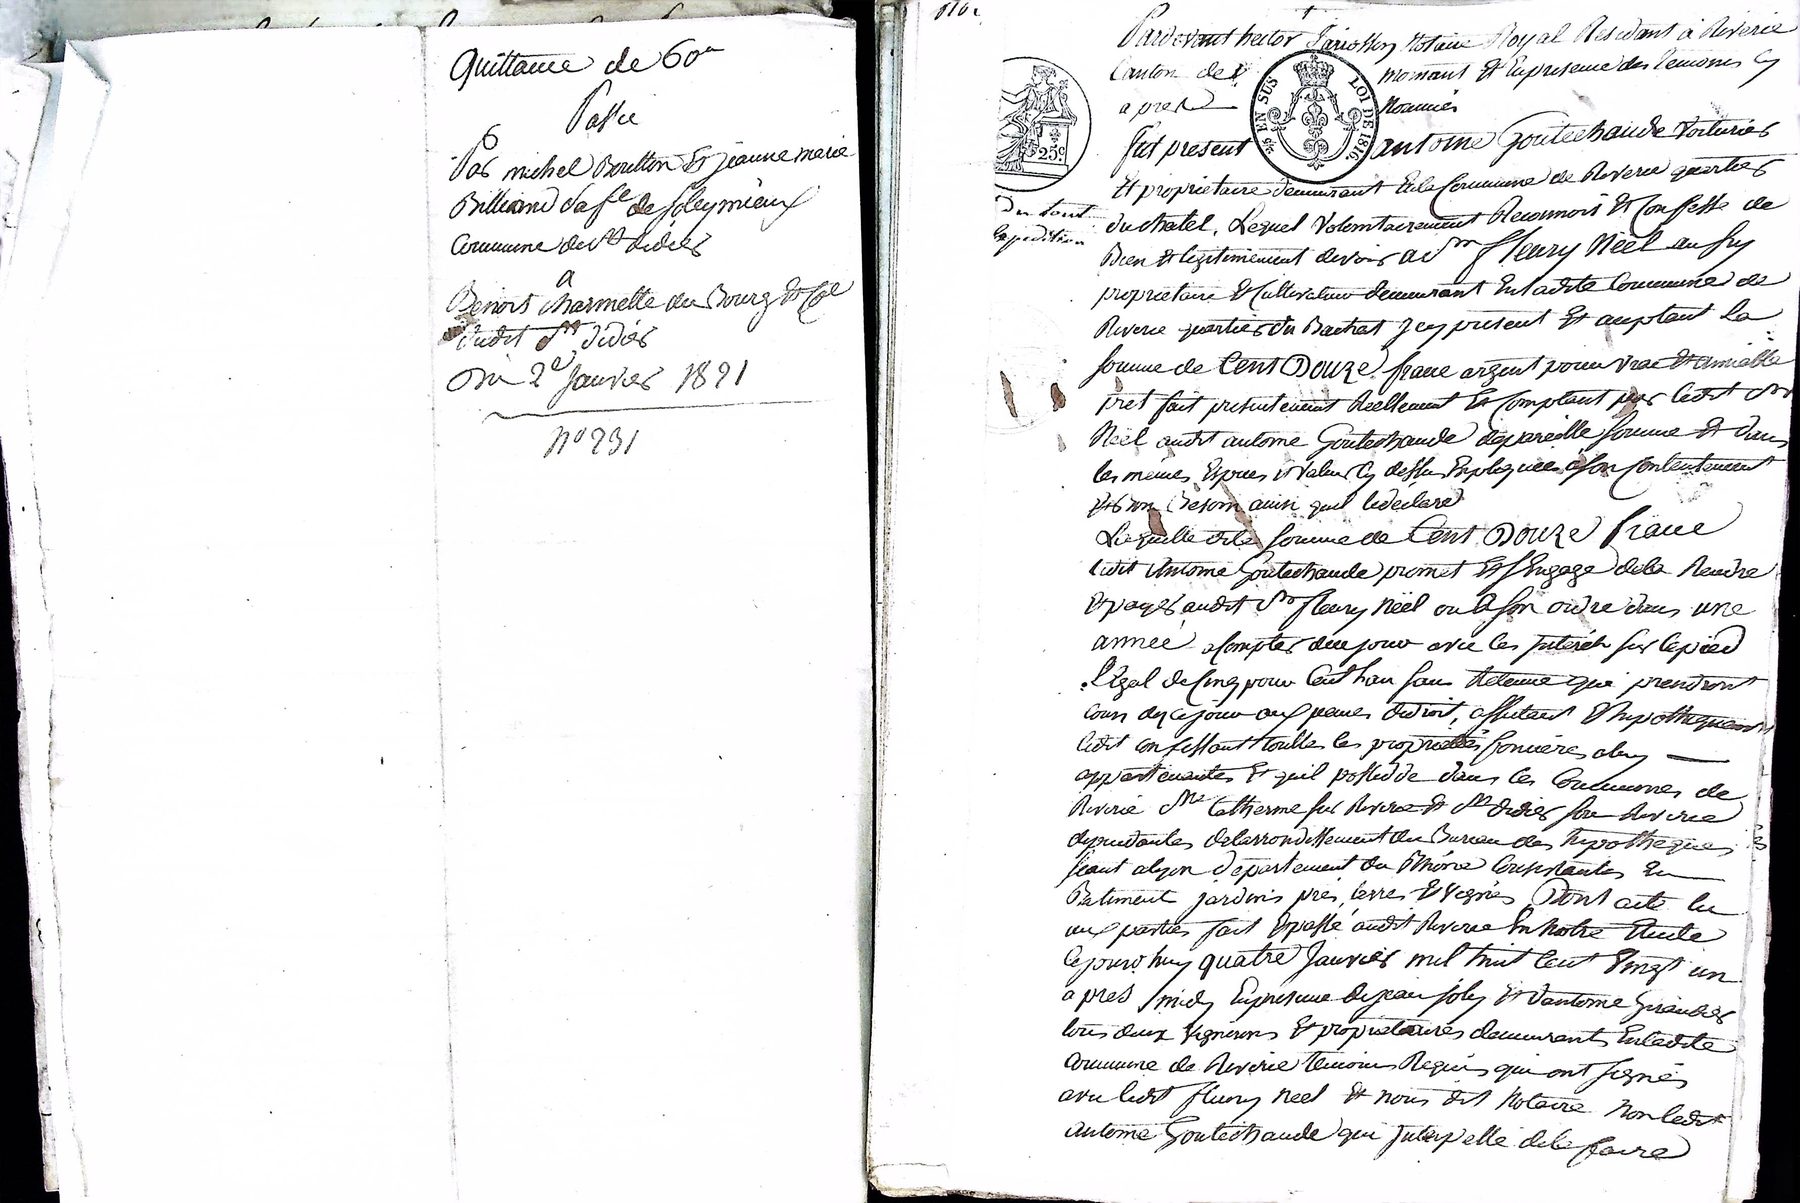 Quittance de 60
Passé
Par michel Boutton Et jeanne marie
Billiand sa fe de soleymieux
Commune de st didier
a
Benoit charmette du Bourg Et Coe
dudit st didier
du 2e janvier 1821
No 231
Pardevant hector notaire Royal Residant à Riverie
Canton de mornant Et En presence des temoins cy
apres nommés
25c
EN SUS
LOI DE 1816.
fut present antoine Goutechaude voiturier
Et proprietaire demeurant En la Commune de Riverie quartier
du tout
Expedition
du chatel, Lequel volontairement Reconnoit Et Confesse de
Bien Et legitimement devoir a sr fleury Néel aussy
proprietaire Et Cultivateur demeurant En ladite Commune de
Riverie quartier du Bachat Icy present Et aceptant La
somme de Cent Douze franc argent pour vrai Et amiable
pret fait presentement Réellement Et Comptant par ledit sr
Néel audit antoine Goutechaude de pareille somme Et dans
les mêmes Especes Et valeur cy dessus Expliquée à son Contentement
Et son Besoin ainsi quil le declare
Laquelle dite somme de Cent Douze franc
ledit Antoine Goutechaude promet Et sEngage de la Rendre
Et payer audit sr fleury Néel ou à son ordre dans une
année a Compter de ce jour avec les Interets sur le pied
Légal de Cinq pour Cent lan sans Retenue qui prendront
cours des ce jour aux peines de droit, affectant Et hypothequant
ledit confessant toutes les propriétés foncières a luy
appartenantes Et quil possede dans les Communes de
Riverie Ste Catherine sur Riverie Et st didier sous Riverie
dependantes de larrondissement du Bureau des hypotheques
séant a lyon departement du Rhône Consistantes En
Batiment jardins prés, terres Et vignes Dont acte lu
aux parties fait Et passé audit Riverie En notre Etude
Cejourdhuy quatre Janvier mil huit Cent vingt un
apres midy En presence de jean joly Et dantoine Giraudier
tous deux vignerons Et proprietaires demeurants En ladite
Commune de Riverie temoins Requis qui ont signés
avec ledit fleury neel Et nous dit Notaire Non ledit
antoine Goutechaude qui Interpellé de le faire